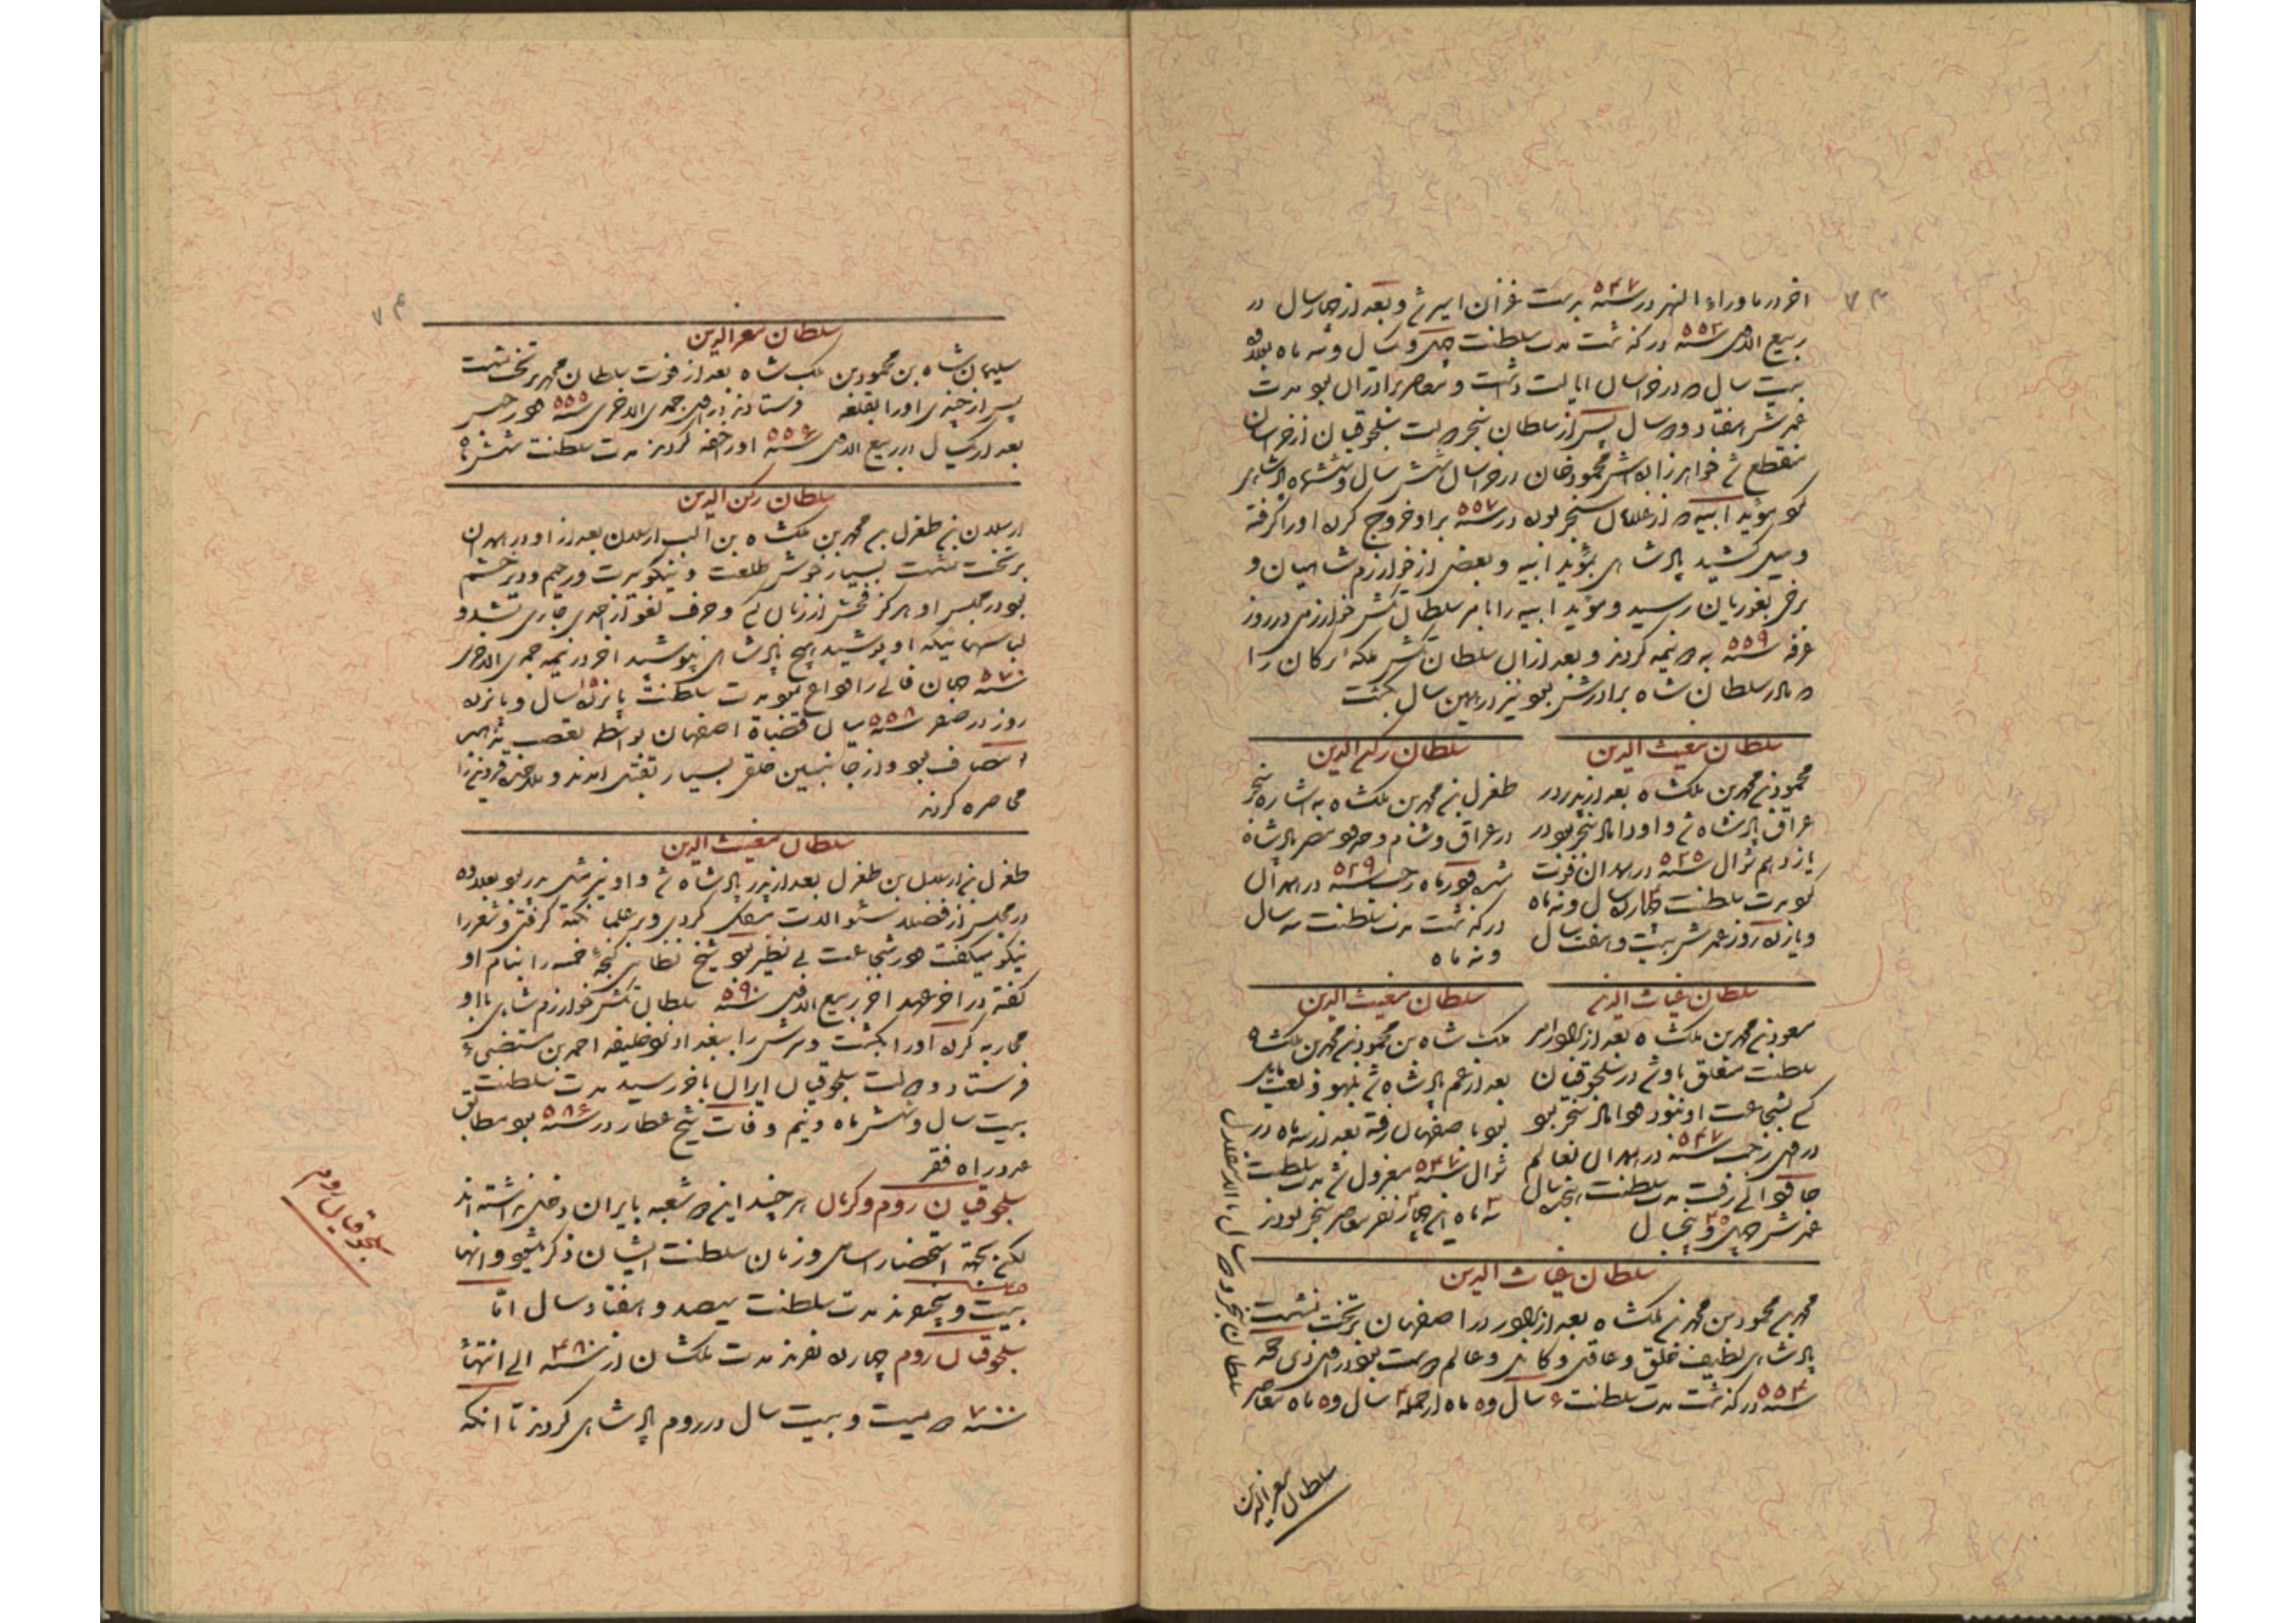 ۷۳
اخر در ماوراء النهر در سنه ۵۴۷ بدست غزان اسیر شد و بعد از چهار سال در
ربیع الاول سنه ۵۵۲ درگذشت مدت سلطنت چهل و یکسال و نه ماه بعلاوه
بیست سال که در خراسان ایالت داشت و معاصر برادران بود مدت
عمرش هفتاد و دو سال پس از سلطان سنجر دولت سلجوقیان از خراسان
منقطع شد خواهرزاده‌اش محمود خان در خراسان شش سال و ششماه پادشاهی
کرد مؤید ابیه که از غلامان سنجر بود در سنه ۵۵۷ بر او خروج کرد او را گرفته
و میل کشید پادشاهی بمؤید ابیه و بعضی از خوارزمشاهیان و
برخی بغوریان رسید و مؤید ابیه را بامر سلطان تکش خوارزمی در روز
عرفه سنه ۵۵۹ به دو نیمه کردند و بعد از آن سلطان تکش ملکه ترکان را
که مادر سلطان شاه برادرش بود نیز در همین سال بکشت
سلطان مغیث الدین
محمود بن محمد بن ملکشاه بعد از پدر در
عراق پادشاه شد و او داماد سنجر بود در
یازدهم شوال سنه ۵۲۵ در همدان فوت
کرد مدت سلطنت چهارده سال و نه ماه
و یازده روز عمرش بیست و هفت سال
سلطان رکن الدین
طغرل بن محمد بن ملکشاه به اشاره سنجر
در عراق و شام و حدود مصر پادشاه
شد در ماه رجب سنه ۵۲۹ در همدان
درگذشت مدت سلطنت سه سال
و نه ماه
سلطان غیاث الدین
مسعود بن محمد بن ملکشاه بعد از برادر امر
سلطنت متعلق باو شد در سلجوقیان
کسی بشجاعت او نبود داماد سنجر بود
در رجب سنه ۵۴۷ در همدان بعالم
باقی رفت مدت سلطنت سال
عمرش چهل و پنجسال
سلطان مغیث الدین
ملک شاه بن محمود بن محمد بن ملکشاه
بعد از عم پادشاه شد بلهو و لعب مایل
بود با اصفهان رفته بعد از سه ماه در
شوال سنه ۵۴۷ معزول شد مدت سلطنت
۳ ماه این چهار نفر معاصر سنجر بودند
سلطان غیاث الدین
محمد بن محمود بن محمد بن ملکشاه بعد از برادر در اصفهان بر تخت نشست
پادشاهی لطیف خلق و عاقل و کامل و عالم دوست بود در ذی حجه
سنه ۵۵۴ درگذشت مدت سلطنت ۶ سال و ده ماه از جمله ۴ سال و ده ماه معاصر
سلطان سنجر و دو سال بالاستقلال
سلطان معز الدین
۷۴
سلطان معز الدین
سلیمان شاه بن محمود بن ملک شاه بعد از فوت سلطان محمد بر تخت نشست
پس از چندی او را بقلعه فرستادند در جمادی الاخری سنه ۵۵۵ در حبس
بعد از یکسال در ربیع الاول سنه ۵۵۶ او را خفه کردند مدت سلطنت شش ماه
سلطان رکن الدین
ارسلان بن طغرل بن محمد بن ملکشاه بن الب ارسلان بعد از او در همدان
بر تخت نشست بسیار خوش طلعت و نیکو سیرت و رحیم و دیر خشم
بود در مجلس او هرگز فحش از زبان کسی و حرف لغو از احدی جاری نشد و
لباسهائیکه او پوشید هیچ پادشاهی نپوشید اخر در نیمه جمادی الاخری
سنه ۵۷۰ جهان فانی را وداع نمود مدت سلطنت پانزده سال و پانزده
روز در صفر سنه ۵۵۸ میان قضاة اصفهان بواسطه تعصب مذاهب
مصاف بود و از جانبین خلق بسیار بقتل امدند و ملاحده قزوین را
محاصره کردند
سلطان مغیث الدین
طغرل بن ارسلان بن طغرل بعد از پدر پادشاه شد و او نیز مثل پدر بود بعلاوه
در مجلس از فضلا سئوالات مشکل کردی و بر علما نکته گرفتی و شعر را
نیکو میگفت و در شجاعت بی نظیر بود شیخ نظامی گنجه خمسه را بنام او
گفته در اخر عهد اخر ربیع الاول سنه ۵۹۰ سلطان تکش خوارزم شاهی با او
محاربه کرده او را بکشت و سرش را ببغداد نزد خلیفه احمد بن مستضیء
فرستاد و دولت سلجوقیان ایران باخر رسید مدت سلطنت
بیست سال و شش ماه و نیم وفات شیخ عطار در سنه ۵۸۶ بود مطابق
در راه فقر
سلجوقیان روم و کرمان هر چند این دو شعبه بایران دخلی نداشته اند
لکن بجهة استحضار اسامی و زمان سلطنت ایشان ذکر میشود و انها
بیست و پنج نفرند مدت سلطنت سیصد و هفتاد سال اما
سلجوقیان روم چهارده نفرند مدت ملکشان از سنه ۴۸۰ الی انتهاء
سنه ۷۰۰ دویست و بیست سال در روم پادشاهی کردند تا انکه
سلجوقیان روم